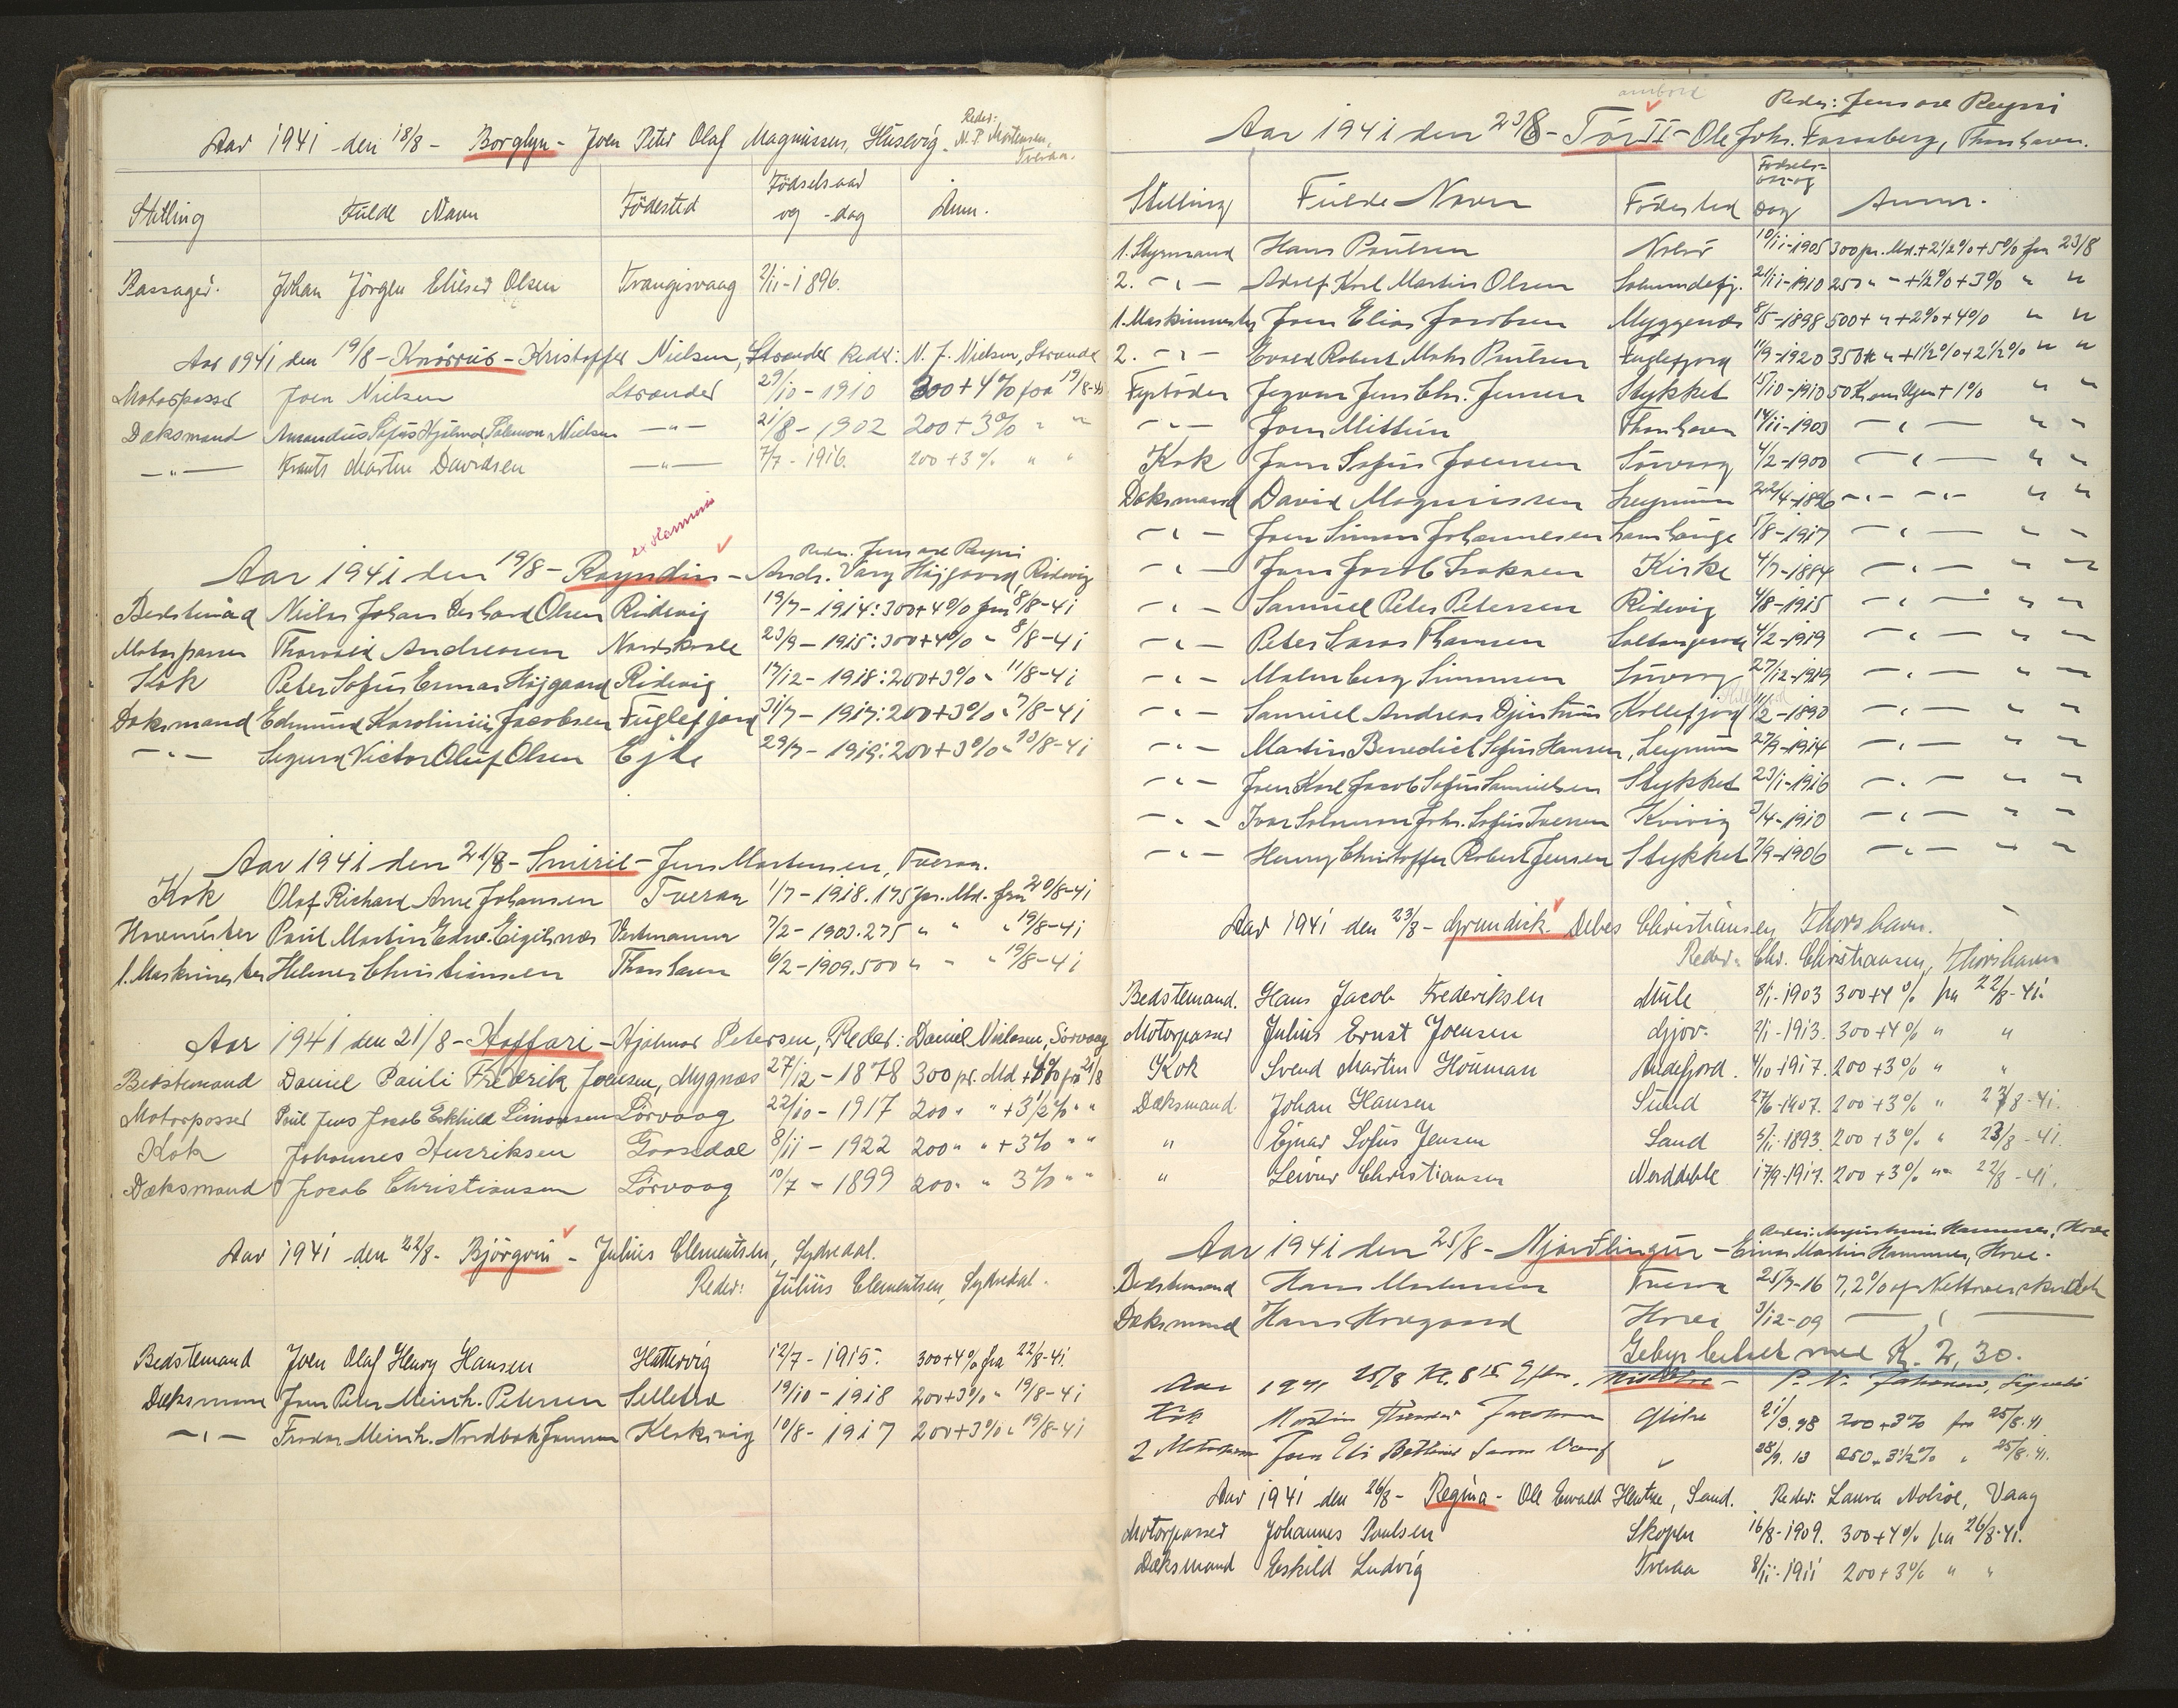 Aar 1941 den 18/8 - Borglyn - Joen Peter Olaf Magnussen, Husevig. Reder: N. P. Mortensen, Tveraa.
Stilling Fulde Navn Födested Födselsaar og -dag Anm.
Passager. Johan Jörgen Elieser Olsen Trangisvaag 2/11-1896.
Aar 1941 den 19/8 - Knörrur - Kristoffer Nielsen, Strænder Reder: N. J. Nielsen, Strænder
Motorpasser Joen Nielsen Strænder 29/10-1910 300+4% fra 19/8-41
Dæksmand Amandus Sofus Hjalmar Salomon Nielsen -"- 21/8-1902 200+3% " "
-"- Martin Davidsen -"- 7/7-1916. 200+3% " "
ex
Reder. Jens av Reyni
Aar 1941 den 19/8 - Royndin - Andr. Vang Höjgaard, Ridevig
Bedstemand Niclas Johan Gerhard Olsen Ridevig 19/7-1914: 300+4% fra 8/8-41
Motorpasser Thorvald Andreasen Nordskaale 23/9-1915: 300+4% " 8/8-41
Kok Peter Sofus Ermar Höjgaard Ridevig 17/12-1918: 200+3% " 11/8-41
Dæksmand Edmund Karolinius Jacobsen Fuglefjord 31/7-1917: 200+3% " 7/8-41
-"- Sigurd Victor Oluf Olsen Ejde 29/7-1919: 200+3% " 13/8-41
Aar 1941 den 21/8 - Smiril - Jens Mortensen, Tveraa.
Kok Olaf Richard Arne Johansen Tveraa 1/7-1918. 175 pr. Md. fra 20/8-41
Hovmester Poul Martin Edw. Eigilsnæs Vestmanna 7/2-1903. 275 " " " 19/8-41
1. Maskinmester Helmer Christiansen Thorshavn 6/2-1909. 500 " " " 19/8-41
Aar 1941 den 21/8 - Haffari - Hjalmar Petersen, Reder: Daniel Nielsen, Sörvaag
Bedstemand Daniel Pauli Fredrik Joensen, Mygnæs 27/12-1878 300 pr. Md +4% fra 21/8
Motorpasser Poul Jens Jacob Eskhild Simonsen Sörvaag 22/10-1917 200 " " +3½% " "
Kok Johannes Henriksen Gaasdal 8/11-1922 200 " " +3% " "
Dæksmand Jacob Christiansen Sörvaag 10/7-1899 200 " " 3% " "
Aar 1941 den 22/8 - Björgvin - Julius Clementsen, Sydredal.
Reder: Julius Clementsen, Sydredal.
Bedstemand Joen Olaf Henry Hansen Hattervig 12/7-1915. 300+4% fra 22/8-41.
Dæksmann Jens Peter Meinh. Petersen Selletræ 19/10-1918 200+3% " 19/8-41
-"- Meinh. Nordbæk Klaksvig 10/8-1917 200+3% " 19/8-41
ombord
Reder: Jens av Reyni
Aar 1941 den 23/8 - Tór II - Ole Johs. Farnaberg, Thorshavn.
Stilling Fulde Navn Födested Födsels-aar og Dag Anm.
1. Styrmand Hans Poulsen Nolsö 10/11-1905 300 pr. Md. +2½%+5% fra 23/8
2. -"- Adolf Karl Martin Olsen Salmundefj. 21/11-1910 250 " " +½%+3% " "
1. Maskinmester Joen Elias Jacobsen Myggenæs 8/5-1898 500+ " +2%+4% " "
2. -"- Evald Robert Mohr Poulsen Fuglefjord 11/9-1920 350 " +1½%+2½% " "
Fyrböder Jegvan Jens Chr. Jensen Stykket 15/10-1910 50 Kr om Ugen +1% " "
-"- Joen Mittún Thorshavn 14/11-1903 -"- " "
Kok Jens Sofus Joensen Sörvaag 4/2-1900 -"- " "
Dæksmand David Magnussen Leynum 22/4-1896 -"- -"- " "
-"- Joen Simon Johannesen Lamhauge 5/8-1917 -"- " "
-"- Jens Jacob Isaksen Kirke 4/7-1884 -"- " "
-"- Samuel Peter Petersen Ridevig 4/8-1915 -"- " "
-"- Peter Lasas Thomsen Saltangeraa 4/2-1919 -"- " "
-"- Malmberg Simonsen Sörvaag 27/12-1919 -"- " "
-"- Samuel Andreas Djurhuus Kollefjord 11/2-1890 -"- " "
-"- Martin Benedict Sofus Hansen, Leynum 27/9-1914 -"- " "
-"- Joen Karl Jacob Sofus Samuelsen Stykket 23/1-1916 -"- " "
-"- Ivar Salomon Johs. Sofus Iversen Kvivig 3/4-1910 -"- " "
-"- Henry Christoffer Robert Jensen Stykket 7/9-1906 -"- " "
Aar 1941 den 23/8 - Grundick. Debes Christiansen Thorshavn.
Reder. Chr. Christiansen, Thorshavn
Bedstemand. Hans Jacob Frederiksen Mule 8/1-1903 300+4% fra 22/8-41.
Motorpasser Julius Ernst Joensen Gjov. 2/1-1913. 300+4% " "
Kok Svend Martin Houman Andefjord. 4/10 1917. 200+3% " "
Dæksmand. Johan Hansen Sund 27/6-1907. 200+3% " 23/8-41.
" Ejnar Sofus Jensen Sand 5/11-1893. 200+3% " 23/8-41.
" Leivur Christiansen Norddeble 17/9-1917. 200+3% "" 22/8-41.
Hove
Aar 1941 den 25/8 - Njardlingur - Einar Martin Hammer, Hove.
Bedstemand Hans Mortensen Tveraa 25/7-16 7,2% af Nettooverskudet
Dæksmand Hans Hovgaard Hove 3/12-09 -"-
Gebyr betalt med Kr. 2,30.
Aar 1941 25/8 Kl. 8 15 P. N.
Kok Martin Jacobsen Glibre 21/3.98 200+3% fra 25/8.41
2 Motorpasser Joen Eli " 28/9.13 250+3½% " 25/8.41.
Aar 1941 den 26/8 - Regina - Ole Ewald Hentze, Sand. Reder: Laura Nolsöe, Vaag
Motorpasser Johannes Poulsen Skopen 16/8-1909. 300+4% fra 26/8-41.
Dæksmand Eskild Ludvig Tveraa 8/11-1911 200+3% " "